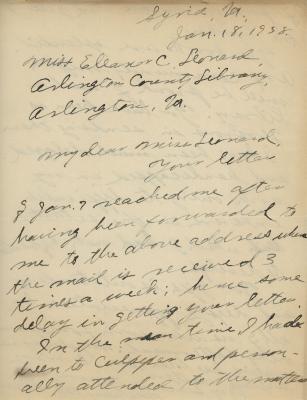 Syria, Va.,
Jan. 18, 1938.
Miss Eleanor C. Leonard,
Arlington County Library,
Arlington, Va.
My dear Miss Leonard,
Your letter
of Jan. 7 reached me after
having been forwarded to
me to the above address where
the mail is received 3
times a week; hence some
delay in getting your letter.
In the mean time I had
been to Culpeper and person-
ally attended to the matter